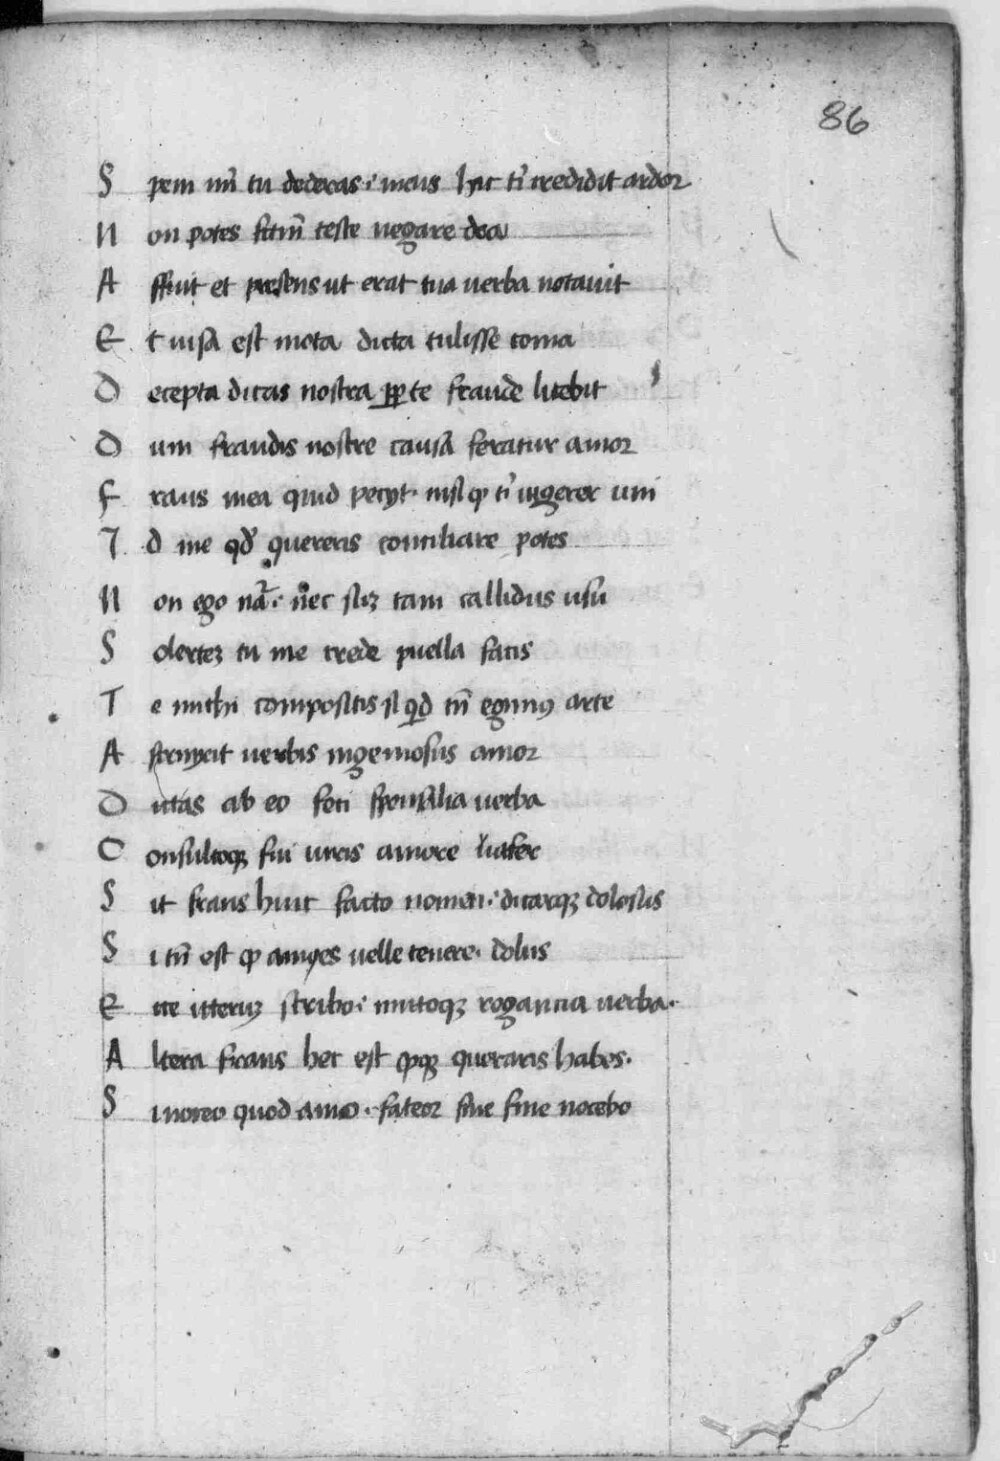 86
S pem mi͞ tu dederas · meus hic ti͞ credidit ardor
N on potes factu͞ teste negare dea
A ffuit et presens ut erat tua verba notavit
E t visa est mota dicta tulisse coma
D ecepta dicas nostra ꝑ te fraude licebit
D um fraudis nostre causa feratur amor
F raus mea quid petyt · nisi ꝙ ti͞ iu͞gerer uni
I d me qd͛ quereris conciliare potes
N on ego na͞ · nec su͞ tam callidus usu
S olertem tu me crede puella facis
T e michi compositis si qd͛ tn͞ egimus arte
A strinxit verbis ingeniosus amor
D ictas ab eo feci sponsalia verba
C onsultoqꝫ fui iuris amore vafer
S it fraus huic facto nomen · dicarqꝫ dolosus
S i tn͞ est ꝙ ames velle tenere · dolus
E ce iterum scribo · mittoqꝫ rogancia verba ·
A ltera fraus hec est ꝙqꝫ queraris habes ·
S i noceo quod amo · fateor sine fine nocebo